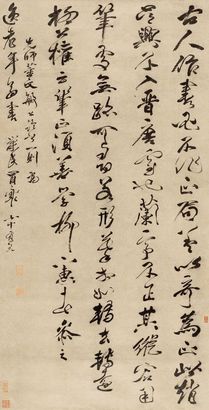 古人作書必不作正局蓋以奇為正此趙
吳興不入晉唐室也蘭亭非不正其縱宕用
筆處無跡可尋若形摹相似轉去轉遠
柳公權云筆正須善學柳下惠者參之
先師董文敏公論書一則為
老年翁書